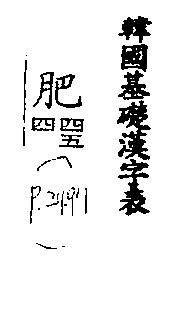 韓國基礎漢字表
肥
四四五